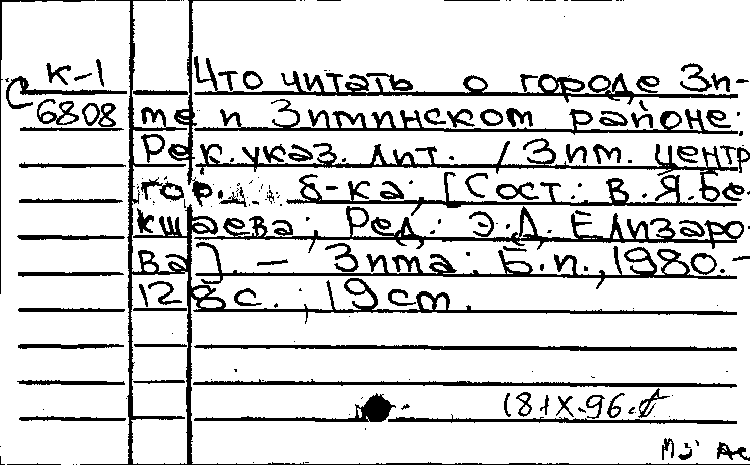 К-1 Что читать о городе Зи-
С 6808 ме и Зиминском районе:
Рек. указ. лит. / Зим. центр
гор. б-ка; [Сост.: В.Я.Бе-
кшаева; Ред.: Э.Д. Елизаро-
ва]. — Зима: Б.и., 1980.—
128 с.; 19 см.